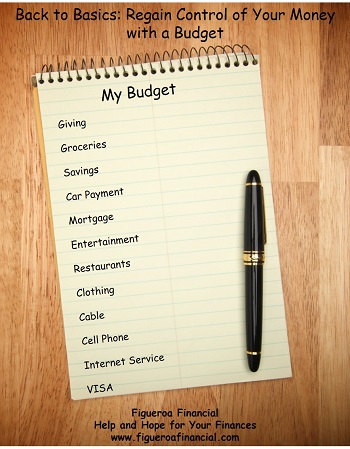 Back to Basics: Regain Control of Your Money
with a Budget
My Budget
Giving
Groceries
Savings
Car Payment
Mortgage
Entertainment
Restaurants
Clothing
Cable
Cell Phone
Internet Service
VISA
Figueroa Financial
Help and Hope for Your Finances
www.figueroafinancial.com